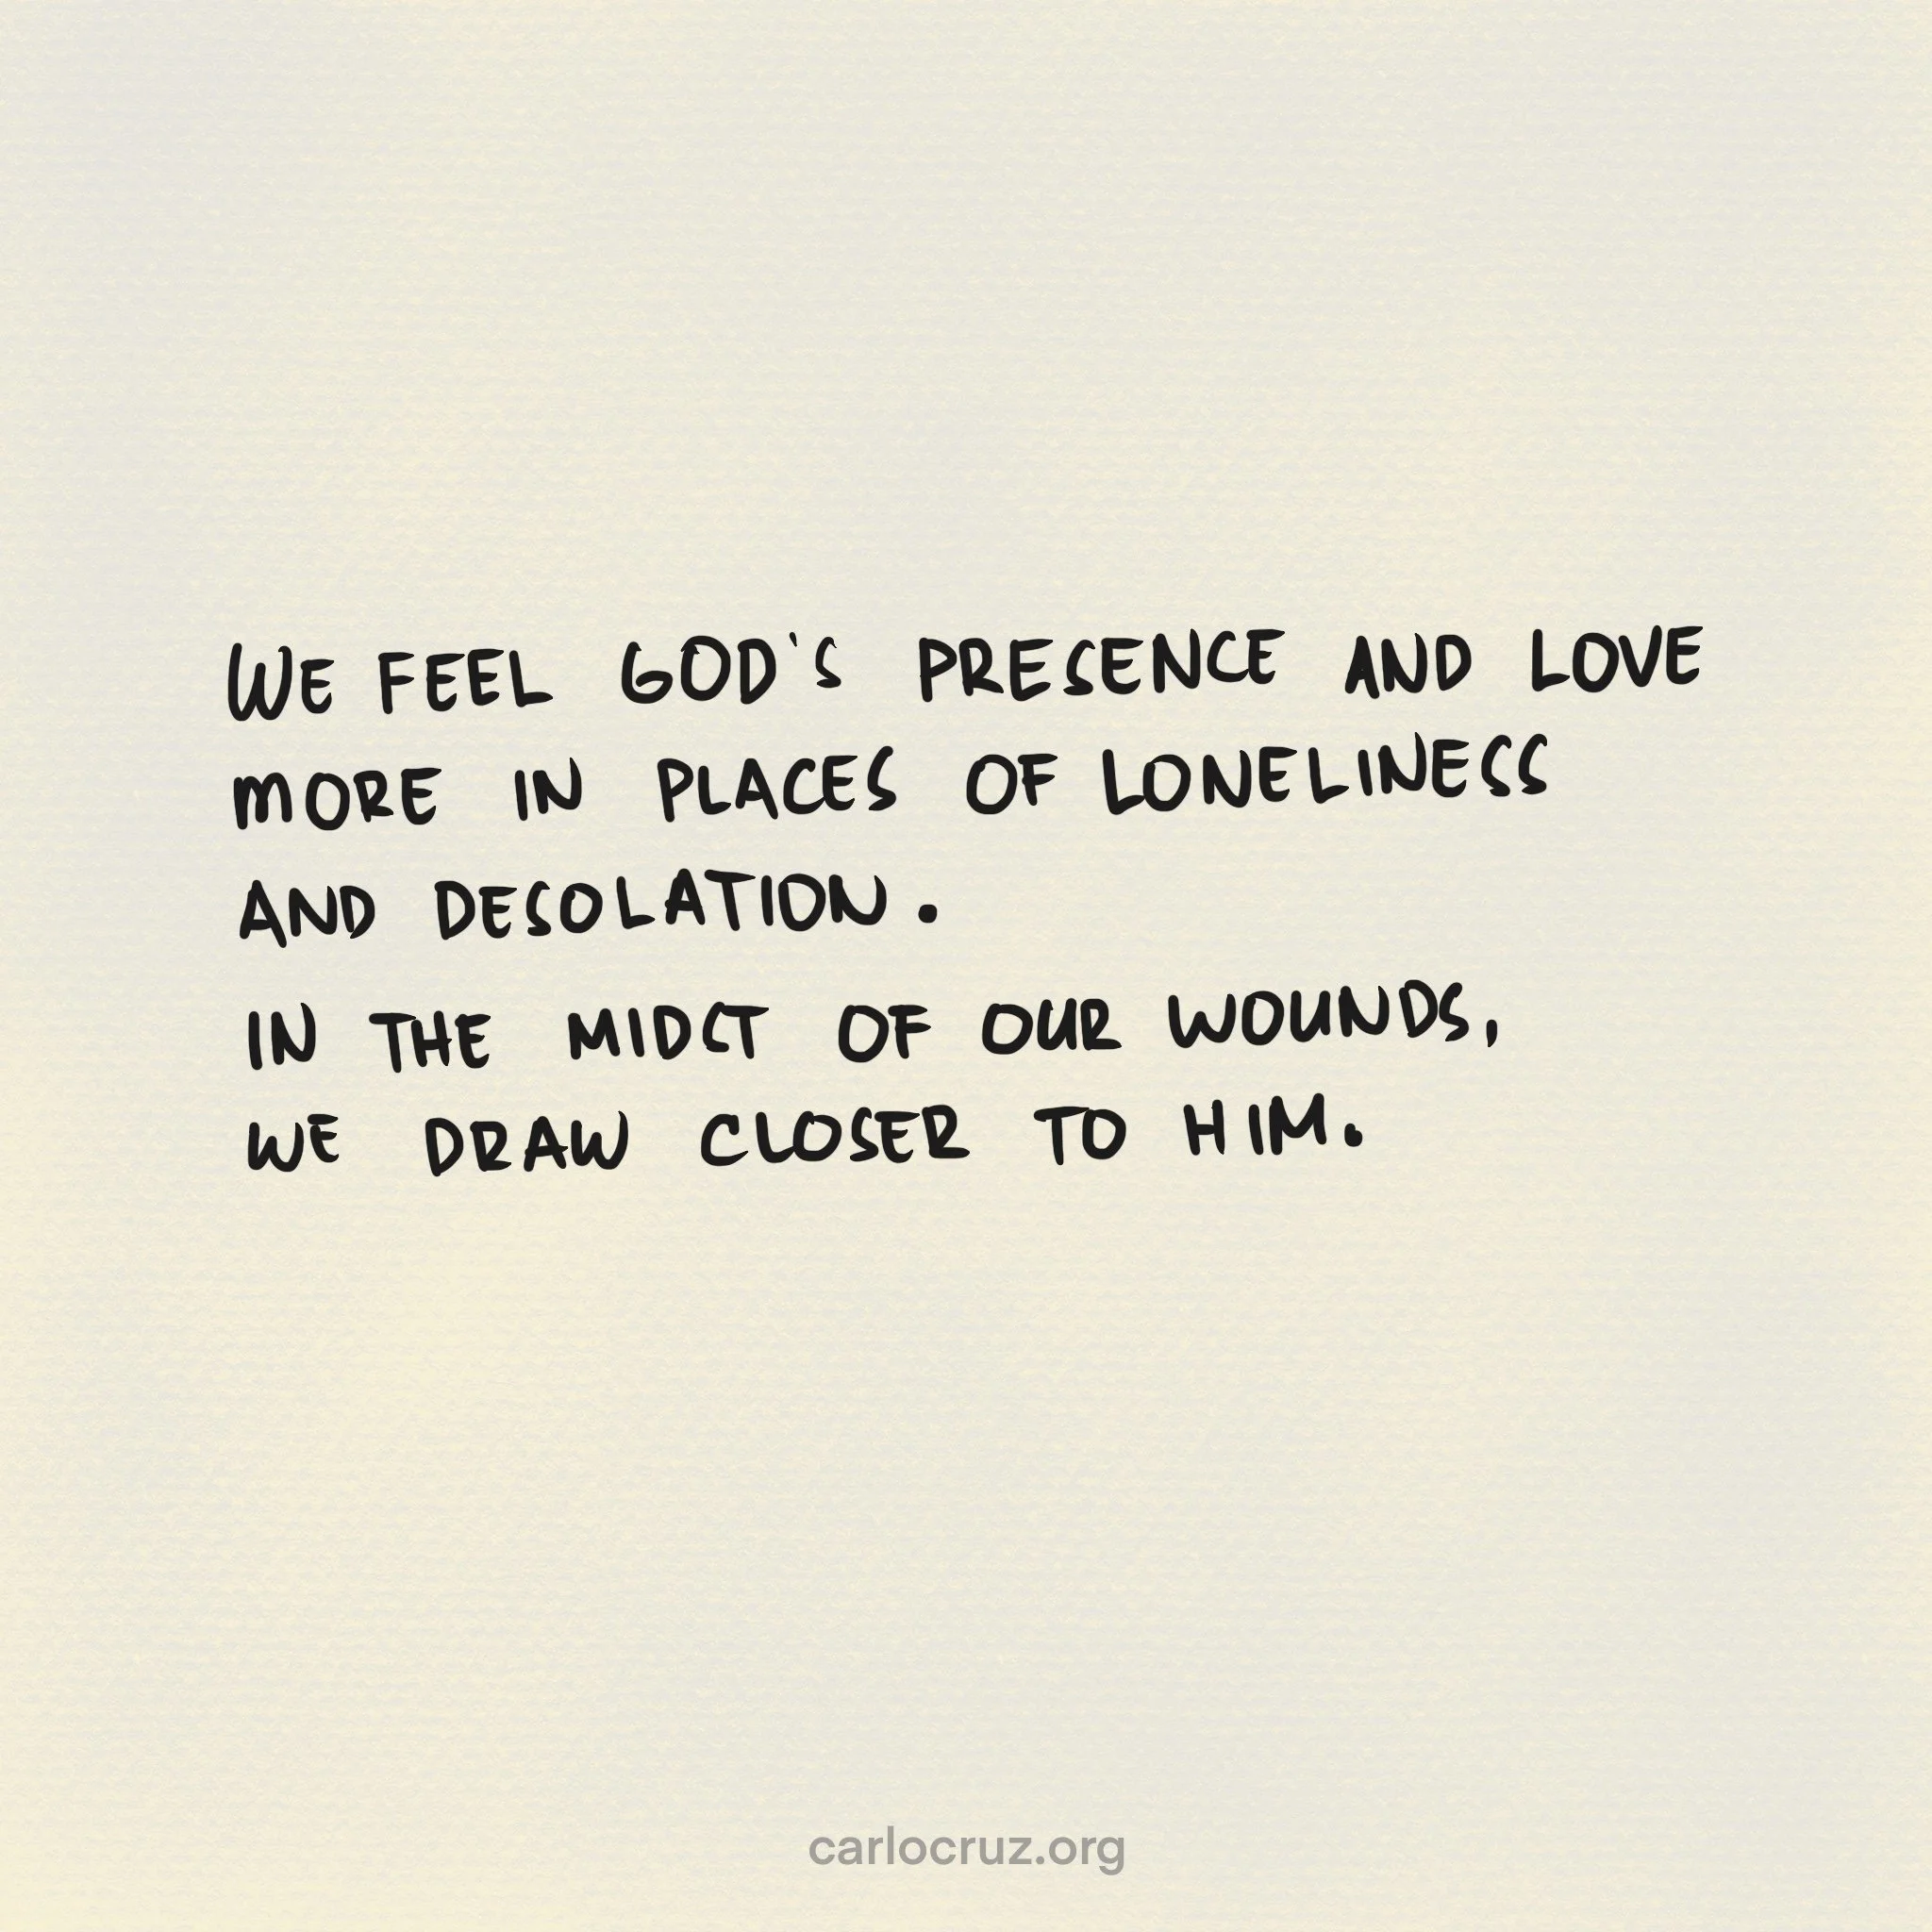 WE FEEL GOD'S PRESENCE AND LOVE
MORE IN PLACES OF LONELINESS
AND DESOLATION.
IN THE MIDST OF OUR WOUNDS,
WE DRAW CLOSER TO HIM.
carlocruz.org